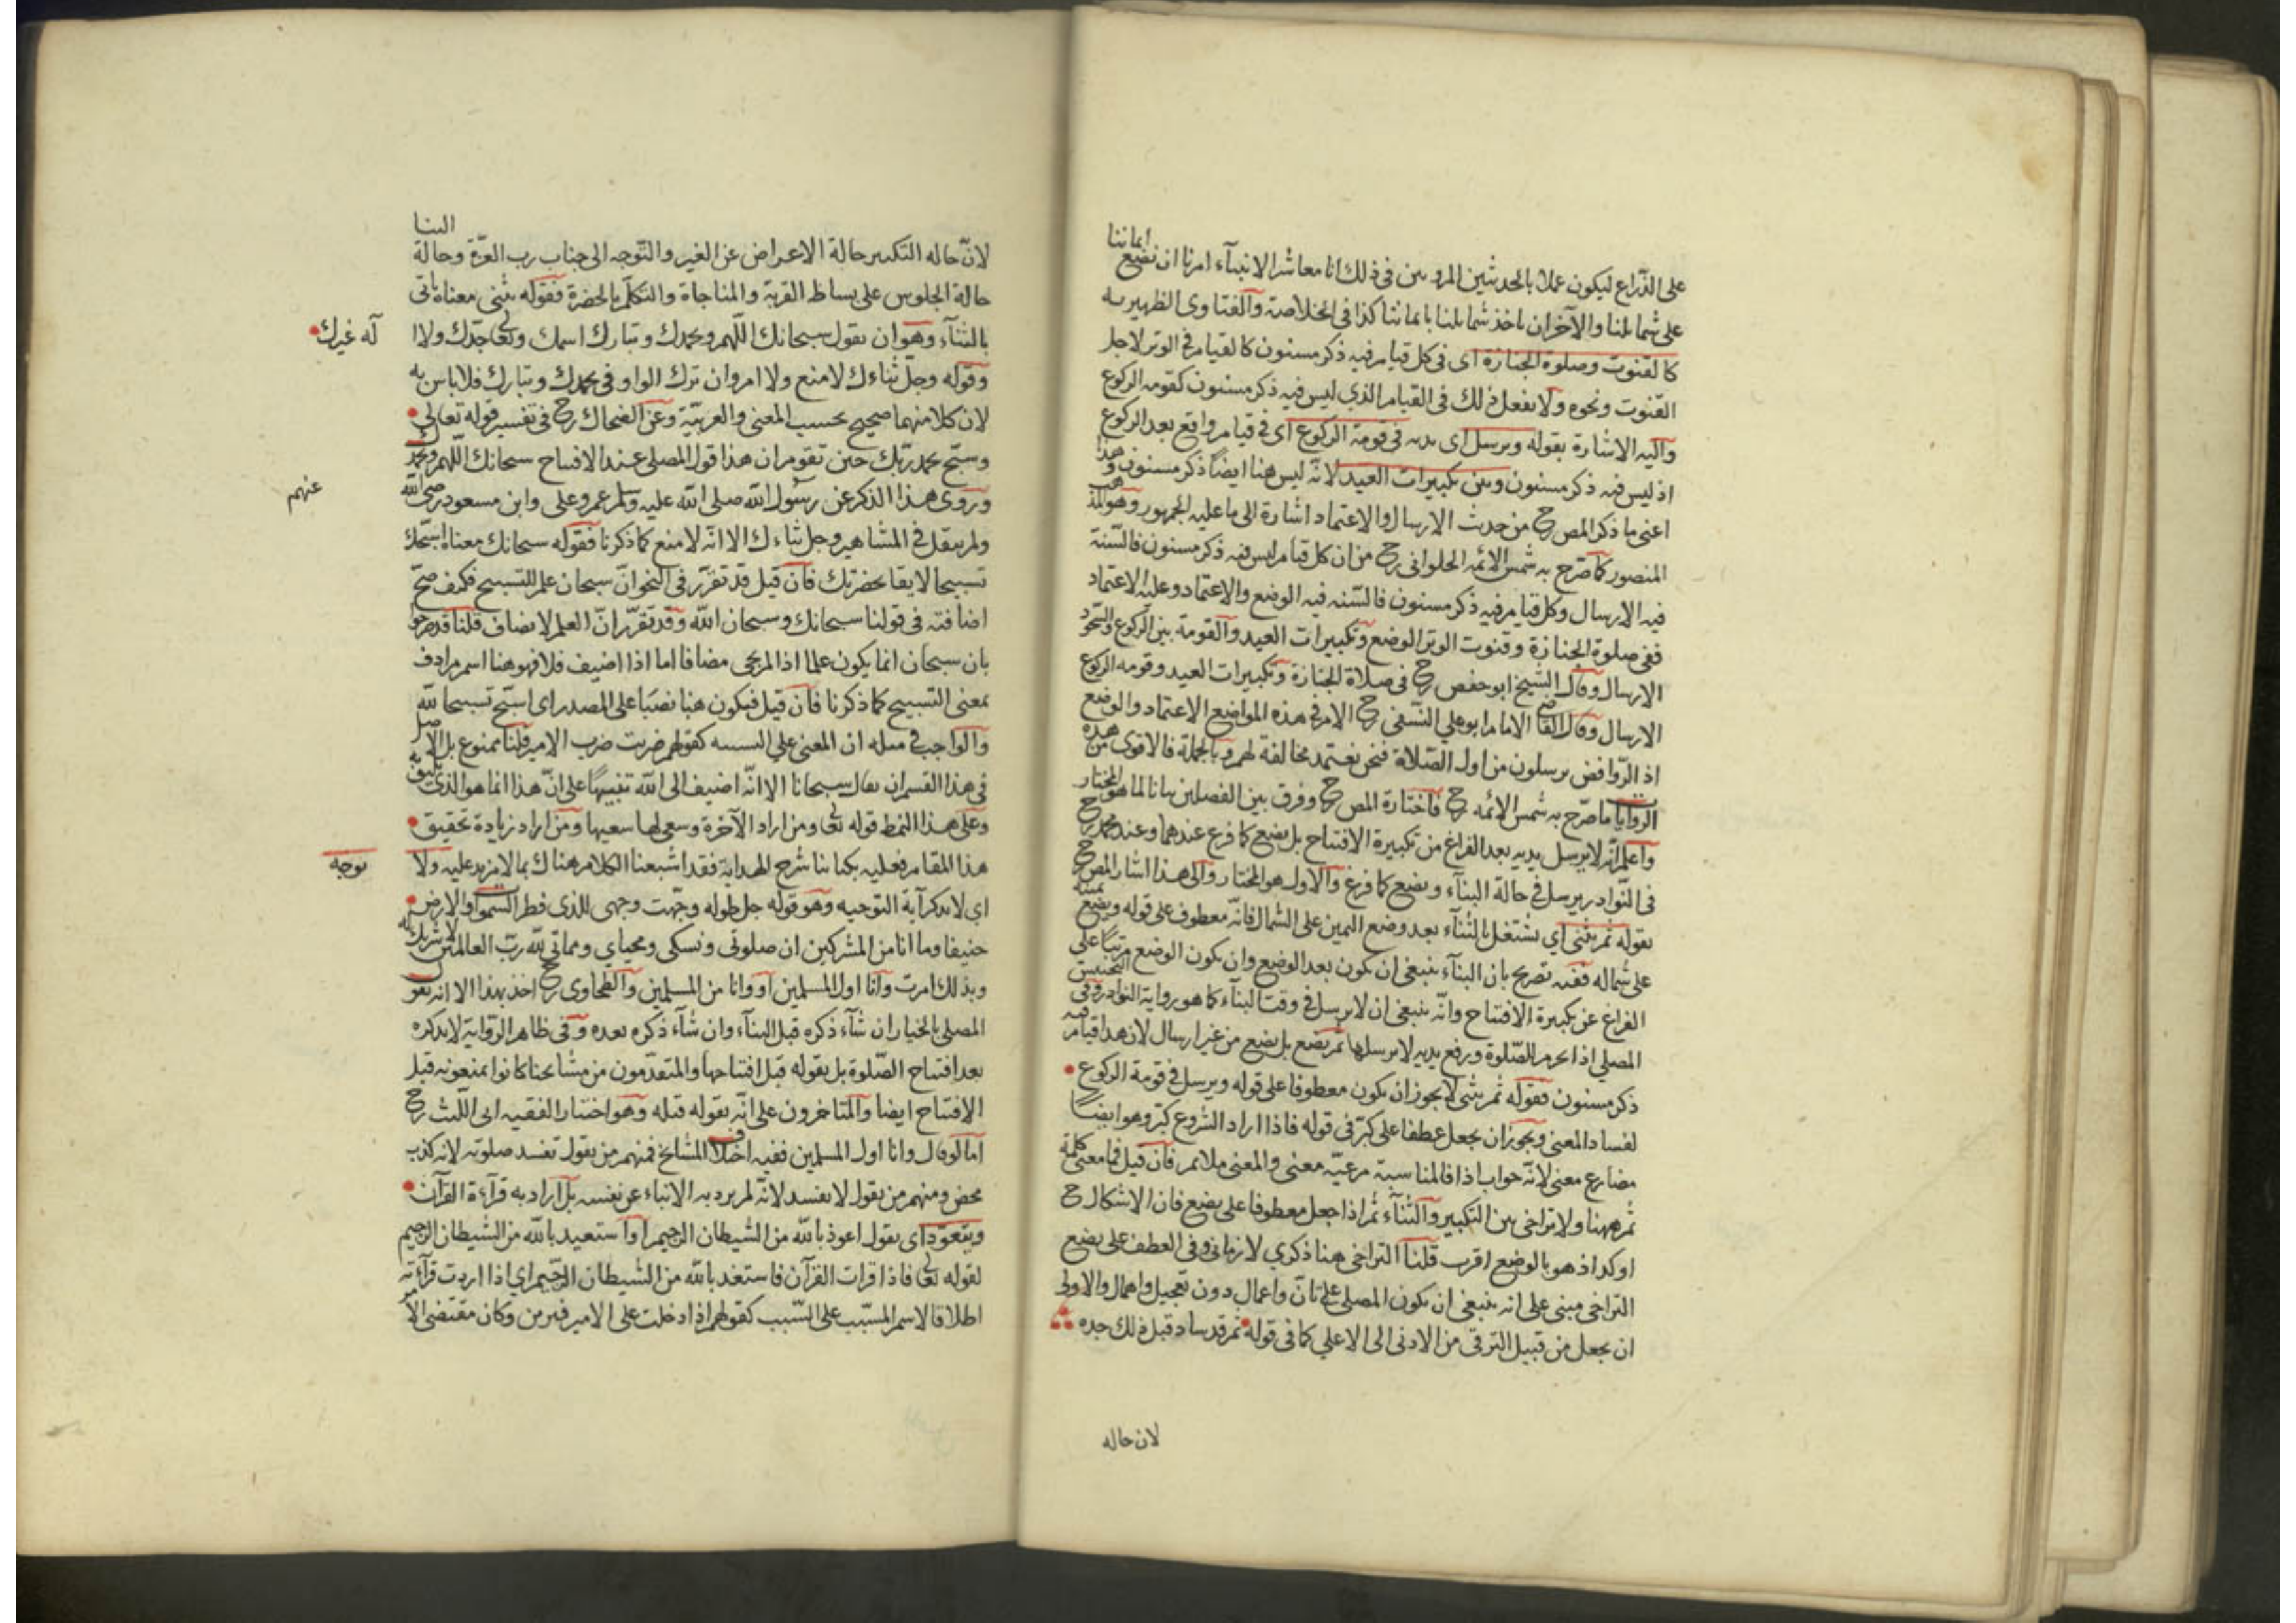 على الذراع ليكون عملا بالحديثين المرويين في ذلك انا معاشر الانبيآء امرنا ان نضع ايماننا
على شمائلنا والآخر ان ناخذ شمائلنا بايماننا كذا في الخلاصة والفتاوى الظهيريه
كالقنوت وصلوة الجنازة اى في كل قيام فيه ذكر مسنون كالقيام في الوتر لاجل
القنوت ونحوه ولا يفعل ذلك في القيام الذي ليس فيه ذكر مسنون كقومه الركوع
وآليه الاشارة بقوله ويرسل اى يديه في قومة الركوع اى في قيام واقع بعد الركوع
اذ ليس فيه ذكر مسنون وبين تكبيرات العيد لانه ليس هنا ايضاً ذكر مسنون وهذا
اعنى ما ذكر المص رح من حديث الارسال والاعتماد اشارة الى ما عليه الجمهور وهو المذهب
المنصور كما صرح به شمس الائمه الحلوانى رح من ان كل قيام ليس فيه ذكر مسنون فالسّنة
فيه الارسال وكل قيام فيه ذكر مسنون فالسّنه فيه الوضع والاعتماد وعليه الاعتماد
ففى صلوة الجنازة وقنوت الوتر الوضع وتكبيرات العيد والقومة بين الركوع والسجود
الارسال وقال الشيخ ابو حفص رح في صلاة الجنازة وتكبيرات العيد وقومه الركوع
الارسال وقال القاضى الامام ابو علي النسفى رح الامر في هذه المواضع الاعتماد والوضع
اذ الروافض يرسلون من اول الصّلاة فنحن نعتمد مخالفة لهم وبالجملة فالاقوى من هذه
الروايات ما صرّح به شمس الائمه رح فاختارة المص رح وفرق بين الفصلين بيانا لما هو المختار
واعلم انه لا يرسل يديه بعد الفراغ من تكبيرة الافتتاح بل يضع كما فرغ عندهما وعند محمد رح
في النوادر يرسل في حالة الثناء ويضع كما فرغ والاول هو المختار والى هذا اشار المص رح
بقوله ثم يثنى اي يشتغل بالثنآء بعد وضع اليمين على الشمال فانه معطوف على قوله ويضع يمينه
على شماله ففيه تصريح بان الثنآء ينبغى ان يكون بعد الوضع وان يكون الوضع مرتباً على
الفراغ عن تكبيرة الافتتاح وانه ينبغى ان لا يرسل في وقت الثنآء كما هو رواية النوادر وفى التجنيس
المصلي اذا احرم للصّلوة ورفع يديه لا يرسلها ثم يضع بل يضع من غير ارسال لان هذا قيام فيه
ذكر مسنون فقوله ثم يثنى لا يجوز ان يكون معطوفا على قوله ويرسل في قومة الركوع
لفساد المعنى ويجوز ان يجعل عطفا على كبّر في قوله فاذا اراد الشروع كبّر وهو ايضاً
مضارع معنى لانه جواب اذا فالمناسبة مرعيّه معنى والمعنى ملائم فان قيل فما معنى كلمة
ثم ههنا ولا تراخى بين التكبير والثنآء ثم اذا جعل معطوفا على يضع فان الاشكال ح
اوكد اذ هو بالوضع اقرب قلنا التراخى هنا ذكري لا زمانى وفى العطف على يضع
التراخى مبنى على انه ينبغى ان يكون المصلي على تأنّ واعمال دون تعجيل واهمال والاولى
ان يجعل من قبيل الترقى من الادنى الى الاعلي كما في قوله ثم قد ساد قبل ذلك جده
لان حاله
لانّ حاله التكبير حالة الاعراض عن الغير والتّوجه الى جناب رب العزّة وحالة الثنا
حالة الجلوس على بساط القربة والمناجاة والتكلم بالحضرة فقوله يثنى معناه ياتى
بالثنآء وهو ان يقول سبحانك اللّهم وبحمدك وتبارك اسمك وتعالى جدّك ولا اله غيرك
وقوله وجلّ ثناءك لا منع ولا امر وان ترك الواو في بحمدك وتبارك فلا باس به
لان كلا منهما صحيح بحسب المعنى والعربيّة وعن الضحاك رح في تفسير قوله تعالى
وسبّح بحمد ربّك حين تقوم ان هذا قول المصلى عند الافتتاح سبحانك اللّهم وبحمدك
وروى هذا الذكر عن رسول الله صلى الله عليه وسلم عمر وعلى وابن مسعود رضى الله عنهم
ولم ينقل في المشاهير وجل ثناءك الا انّه لا منع كما ذكرنا فقوله سبحانك معناه اسبّحك
تسبيحا لايقا بحضرتك فان قيل قد تقرّر في النحو انّ سبحان علم للتسبيح فكيف صحّ
اضافته في قولنا سبحانك وسبحان الله وقد تقرّر انّ العلم لا يضاف قلنا قد صرحوا
بان سبحان انما يكون علما اذا لم يجى مضافا اما اذا اضيف فلا فهو هنا اسم مرادف
بمعنى التسبيح كما ذكرنا فان قيل فيكون هنا نصبا على المصدر اى اسبّح تسبيحا لله
والواجب في مثله ان المعنى على التشبيه كقولهم ضربت ضرب الامير قلنا ممنوع بل الاصل
في هذا القسم ان يقال سبحانا الا انّه اضيف الى الله تنبيهًا على انّ هذا انما هو الذى يليق به
وعلى هذا النمط قوله تعالى ومن اراد الآخرة وسعى لها سعيها ومن اراد زيادة تحقيق
هذا المقام فعليه بكتابنا شرح الهداية فقد اشبعنا الكلام هناك بما لا مزيد عليه ولا يوجه
اي لا يذكر آية التوجيه وهو قوله جل طوله وجّهت وجهى للذى فطر السّموات والارض
حنيفا وما انا من المشركين ان صلوتى ونسكى ومحياي ومماتي لله ربّ العالمين لا شريك له
وبذلك امرت وانا اول المسلمين او وانا من المسلمين والطحاوى رح اخذ بهذا الا انه يقول
المصلى بالخيار ان شآء ذكره قبل الثنآء وان شآء ذكره بعده وفى ظاهر الرّواية لا يذكره
بعد افتتاح الصّلوة بل يقوله قبل افتتاحها والمتقدّمون من مشايخنا كانوا يمنعونه قبل
الافتتاح ايضا والمتاخرون على انّه يقوله قبله وهو اختيار الفقيه ابى اللّيث رح
اما لو قال وانا اول المسلمين ففيه اختلاف المشايخ فمنهم من يقول تفسد صلوته لانه كذب
محض ومنهم من يقول لا يفسد لانّه لم يرد به الانباء عن نفسه بل اراد به قرآءة القرآن
ويتعوّذ اى يقول اعوذ بالله من الشيطان الرجيم او استعيذ بالله من الشيطان الرجيم
لقوله تعالى فاذا قرات القرآن فاستعذ بالله من الشيطان الرّجيم اي اذا اردت قرآءته
اطلاقا لاسم المسبّب على السّبب كقولهم اذا دخلت على الامير فتزين وكان مقتضى الامر